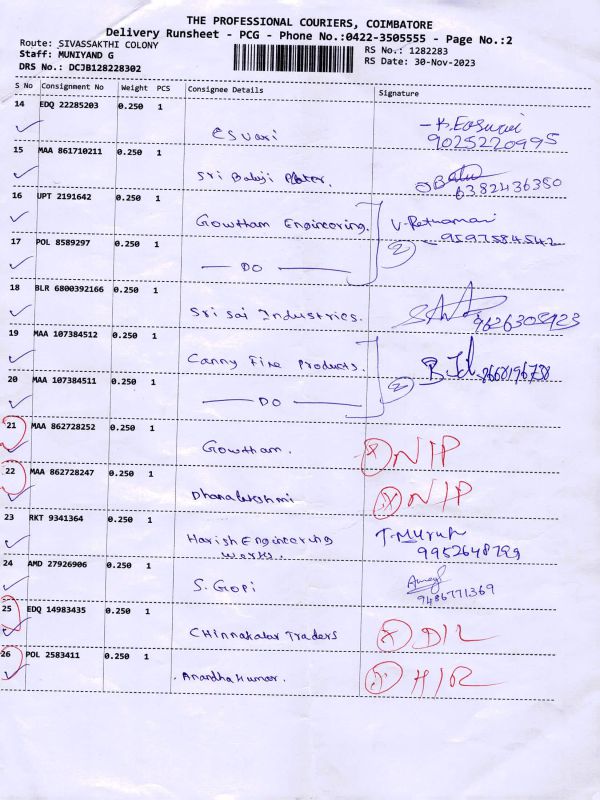 THE PROFESSIONAL COURIERS, COIMBATORE
Delivery Runsheet - PCG - Phone No.:0422-3505555 - Page No.:2
Route: SIVASSAKTHI COLONY
RS No.: 1282283
Staff: MUNIYAND G
RS Date: 30-Nov-2023
DRS No.: DCJB128228302
S No Consignment No Weight PCS Consignee Details Signature
14 EDQ 22285203 0.250 1
Esvari K.Easwari
9025220995
15 MAA 861710211 0.250 1
Sri Balaji
6382436350
16 UPT 2191642 0.250 1
Gowtham Engineering. V. Retnamani
9597584542
17 POL 8589297 0.250 1
2
DO
18 BLR 6800392166 0.250 1
Sri Sai Industries.
9626308923
19 MAA 107384512 0.250 1
Canny Fire Products.
8668196758
20 MAA 107384511 0.250 1
2
DO
21 MAA 862728252 0.250 1
Gowtham. NIP
22 MAA 862728247 0.250 1
Dhanalakshmi NIP
23 RKT 9341364 0.250 1
Harish Engineering
Works.
9952648799
24 AMD 27926906 0.250 1
S. Gopi
9486771369
25 EDQ 14983435 0.250 1
Chinnakalar Traders D/L
26 POL 2583411 0.250 1
Anandha Kumar. H/R